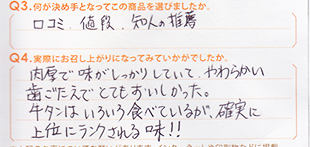 Q3.何が決め手となってこの商品を選びましたか。
口コミ、値段、知人の推薦
Q4.実際にお召し上がりになってみていかがでしたか。
肉厚で味がしっかりしていて、やわらかい
歯ごたえでとてもおいしかった。
牛タンはいろいろ食べているが、確実に
上位にランクされる味!!